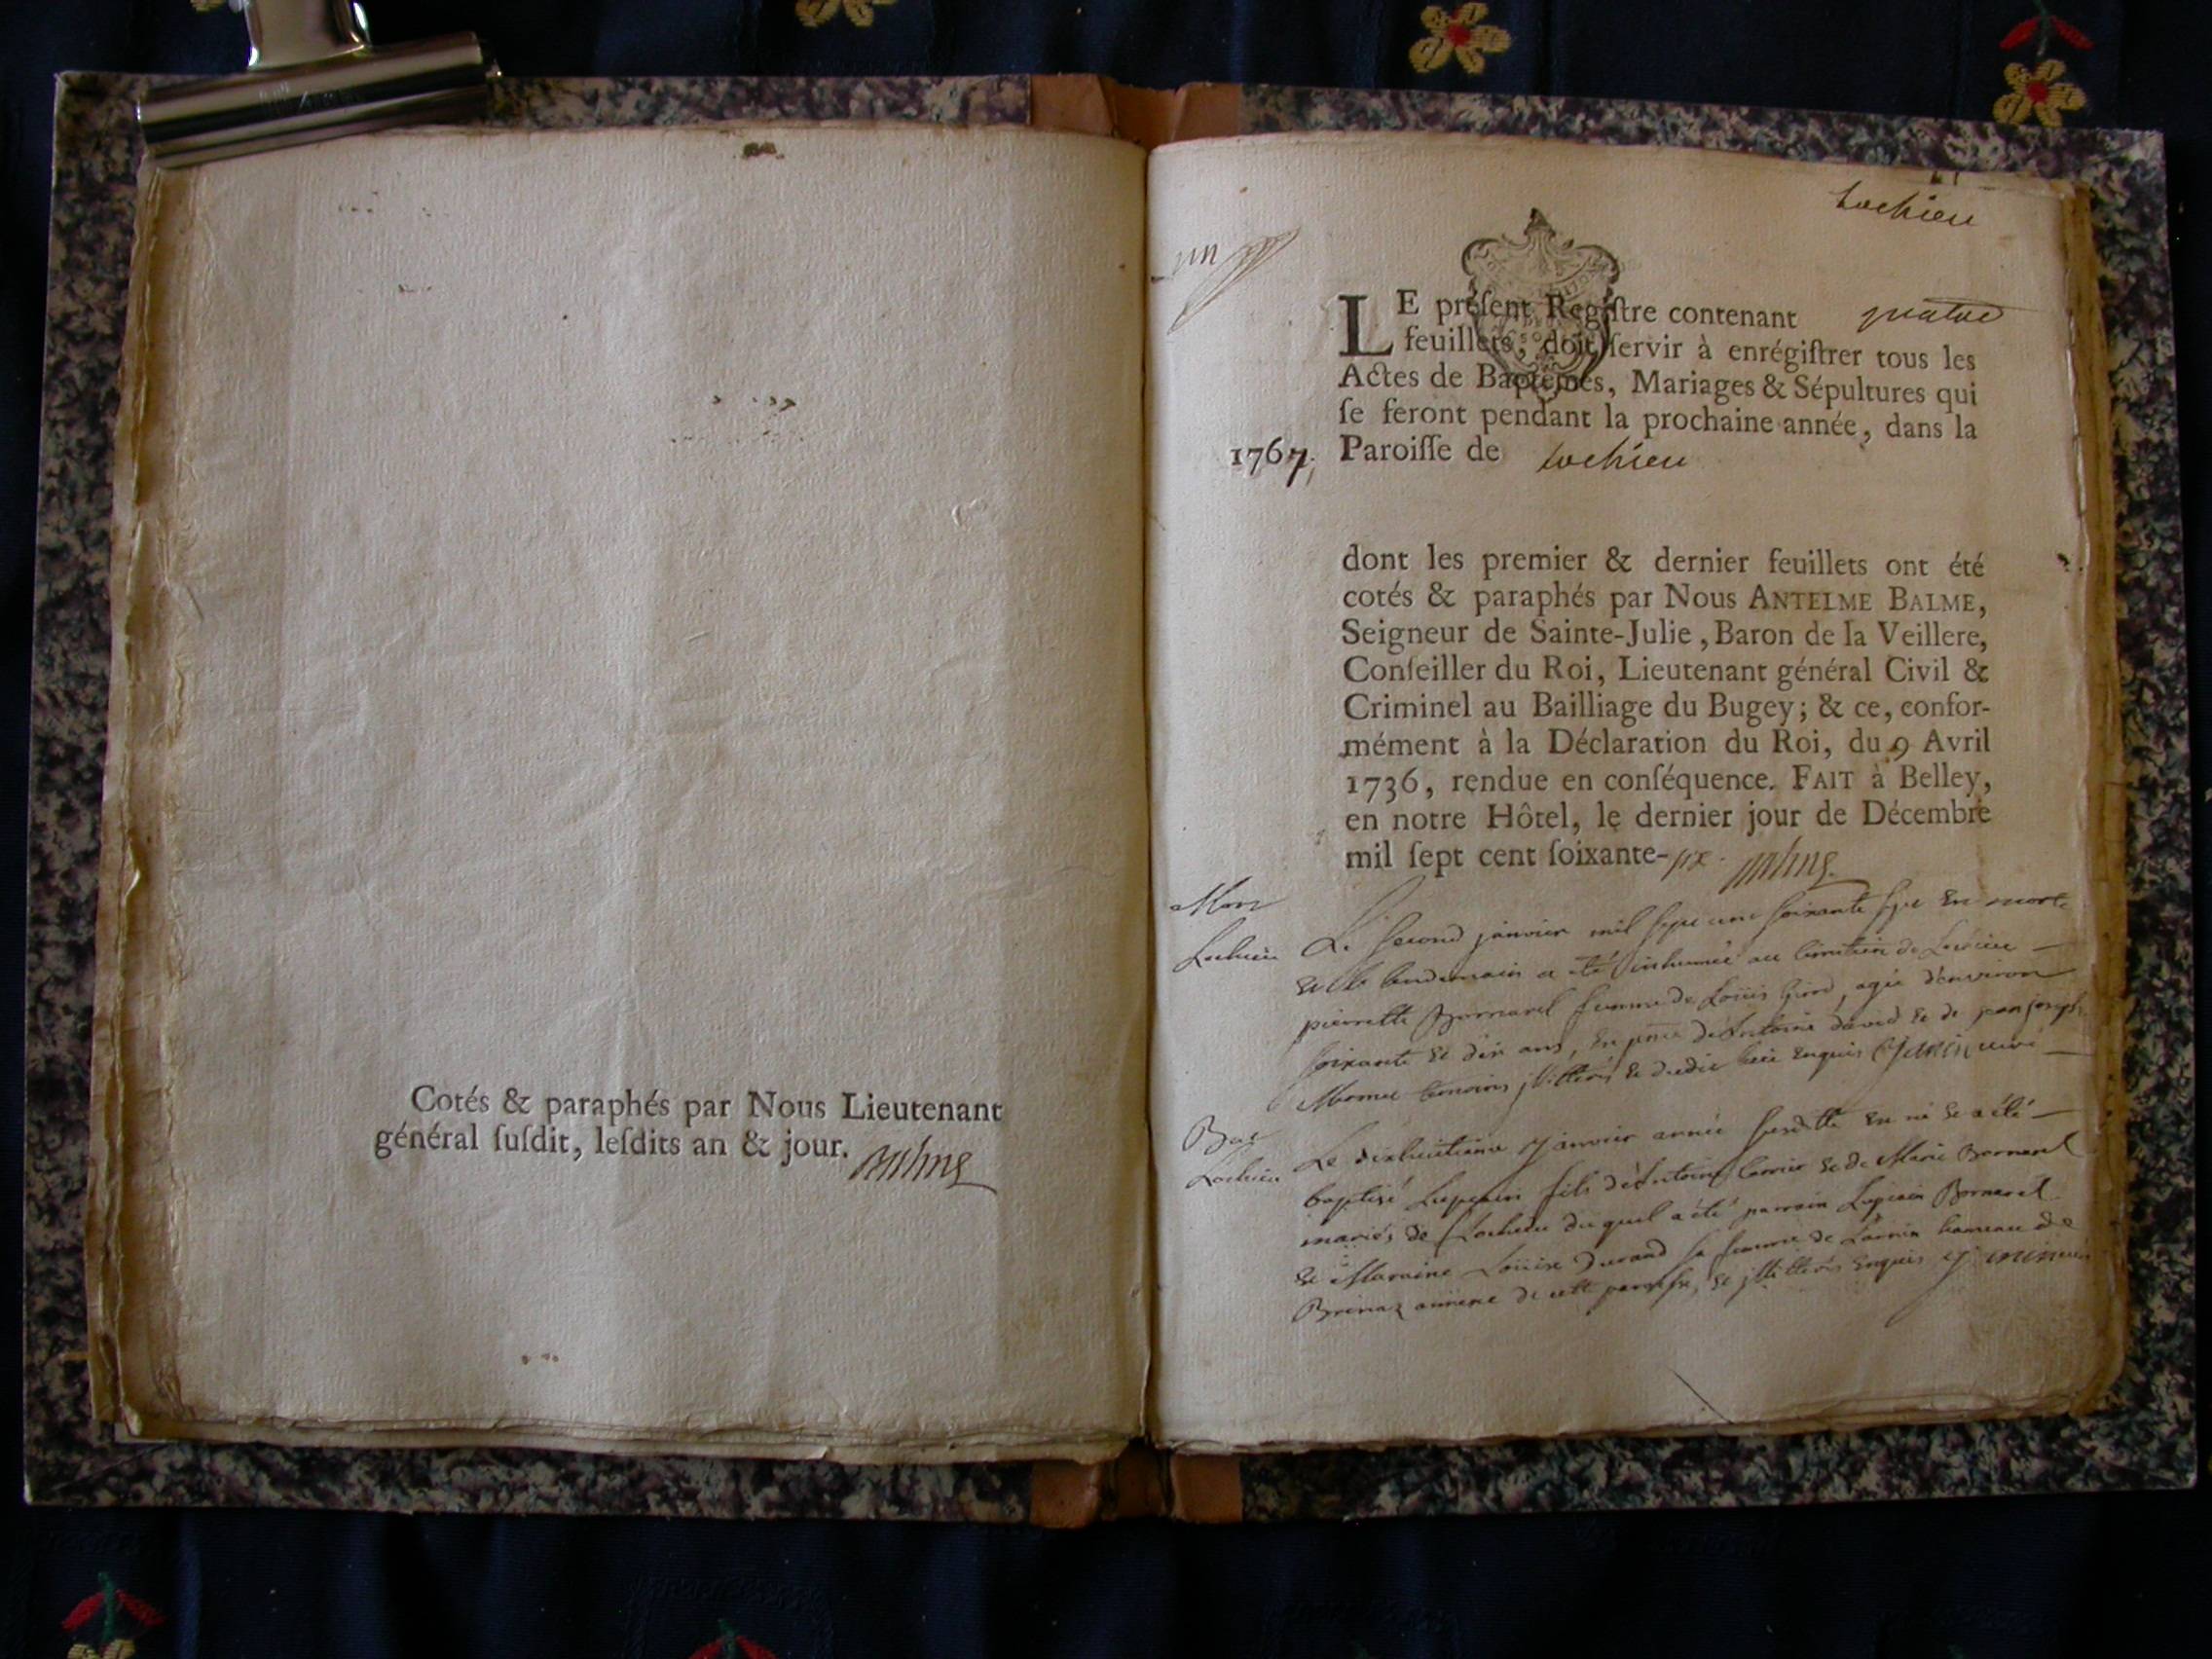 Cotés & paraphés par Nous Lieutenant
général suſdit, leſdits an & jour.
Lochieu
un
LE préſent Regiſtre contenant quatre
feuillets, doit ſervir à enrégiſtrer tous les
Actes de Baptêmes, Mariages & Sépultures qui
ſe feront pendant la prochaine année, dans la
1767, Paroiſſe de Lochieu
dont les premier & dernier feuillets ont été
cotés & paraphés par Nous ANTELME BALME,
Seigneur de Sainte-Julie, Baron de la Veillere,
Conſeiller du Roi, Lieutenant général Civil &
Criminel au Bailliage du Bugey; & ce, confor-
mément à la Déclaration du Roi, du 9 Avril
1736, rendue en conſéquence. FAIT à Belley,
en notre Hôtel, le dernier jour de Décembre
mil ſept cent ſoixante-six.
Mort
Lochieu
Le second janvier mil sept cent soixante sept est morte
et le lendemain a été inhumée au cimetiere de Lochieu
pierrette Bornarel femme de Loüis, agée d'environ
soixante et dix ans, en d'Antoine david et de jean joseph
temoins illitterés et enquis
Bap
Lochieu
Le dixhuitieme janvier année susditte est né et a été
baptisé Lupicin fils d'Antoine et de Marie Bornarel
mariés de Lochieu duquel a été parrain Lupicin Bornarel
et Maraine Loüise Durand sa femme de hameau de
Brenaz annexe de cette paroisse, et illitterés enquis